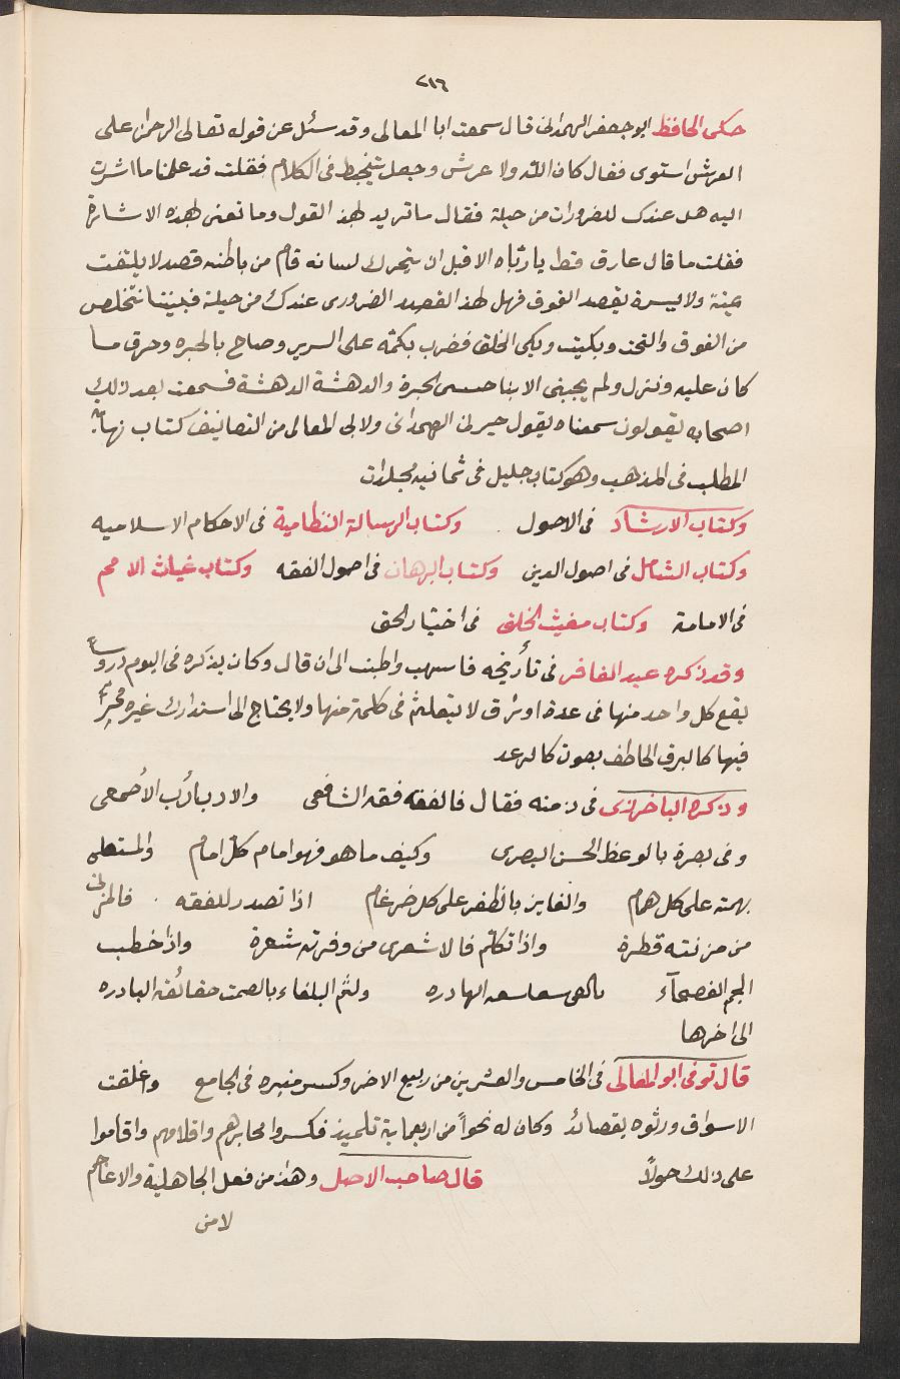 ٢١٦
حكى الحافظ ابو جعفر الهمدانى قال سمعت ابا المعالى وقد سئل عن قوله تعالى الرحمن على
العرش استوى فقال كان الله ولا عرش وجعل يتخبط فى الكلام فقلت قد علمنا ما اشرت
اليه هل عندك للضرورات من حيلة فقال ما تريد بهذ القول وما تعنى بهذه الاشارة
فقلت ما قال عارف قط يا رباه الا قبل ان يتحرك لسانه قام من باطنه قصد لا يلتفت
يمنة ولا يسرة يقصد الفوق فهل لهذ القصد الضرورى عندك من حيلة فبيننا نتخلص
من الفوق والتحت وبكيت وبكى الخلق فضرب بكمه على السرير وصاح بالحيره وخرق ما
كان عليه ونزل ولم يجبنى الا بنا حسى الحيرة والدهشة الدهشة فسمعت بعد ذلك
اصحابه يقولون سمعناه يقول حيرنى الهمدانى ولابى المعالى من التصانيف كتاب نهاية
المطلب فى المذهب وهو كتاب جليل فى ثمانيه مجلدات
وكتاب الارشاد فى الاصول وكتاب الرسالة النظامية فى الاحكام الاسلاميه
وكتاب الشامل فى اصول الدين وكتاب البرهان فى اصول الفقه وكتاب غياث الامم
فى الامامة وكتاب مغيث الخلق فى اختيار الحق
وقد ذكره عبد الغافر فى تأريخه فاسهب واطنب الى ان قال وكان يذكره فى اليوم دروسا
يقع كل واحد منها فى عدة اوراق لا يتعلثم فى كلمة منها ولا يحتاج الى استدراك غيره
فيها كالبرق الخاطف بصوت كالرعد
وذكره الباخرزى فى دمنه فقال فالفقه فقه الشافعى والادب ادب الأصمعى
وفى بصرة بالوعظ الحسن البصرى وكيف ما هو فهو امام كل امام والمستعلى
بهمته على كل همام والفايز بالظفر على كل ضرغام اذا تصدر للفقه فالمزنى
من مزنته قطرة واذا تكلم فالاشعرى من وفرته شعرة واذا خطب
الجم الفصحآء الهادره ولثم البلغاء بالصمت حقائقه البادره
الى اخرها
قال توفى ابو المعالى فى الخامس والعشرين من ربيع الاخر وكسر منبره فى الجامع واغلقت
الاسواق ورثوه بقصائد وكان له نحواً من اربعماية تلميذ فكسروا محابرهم واقلامهم واقاموا
على ذلك حولاً قال صاحب الاصل وهذا من فعل الجاهلية والاعاجم
لا من